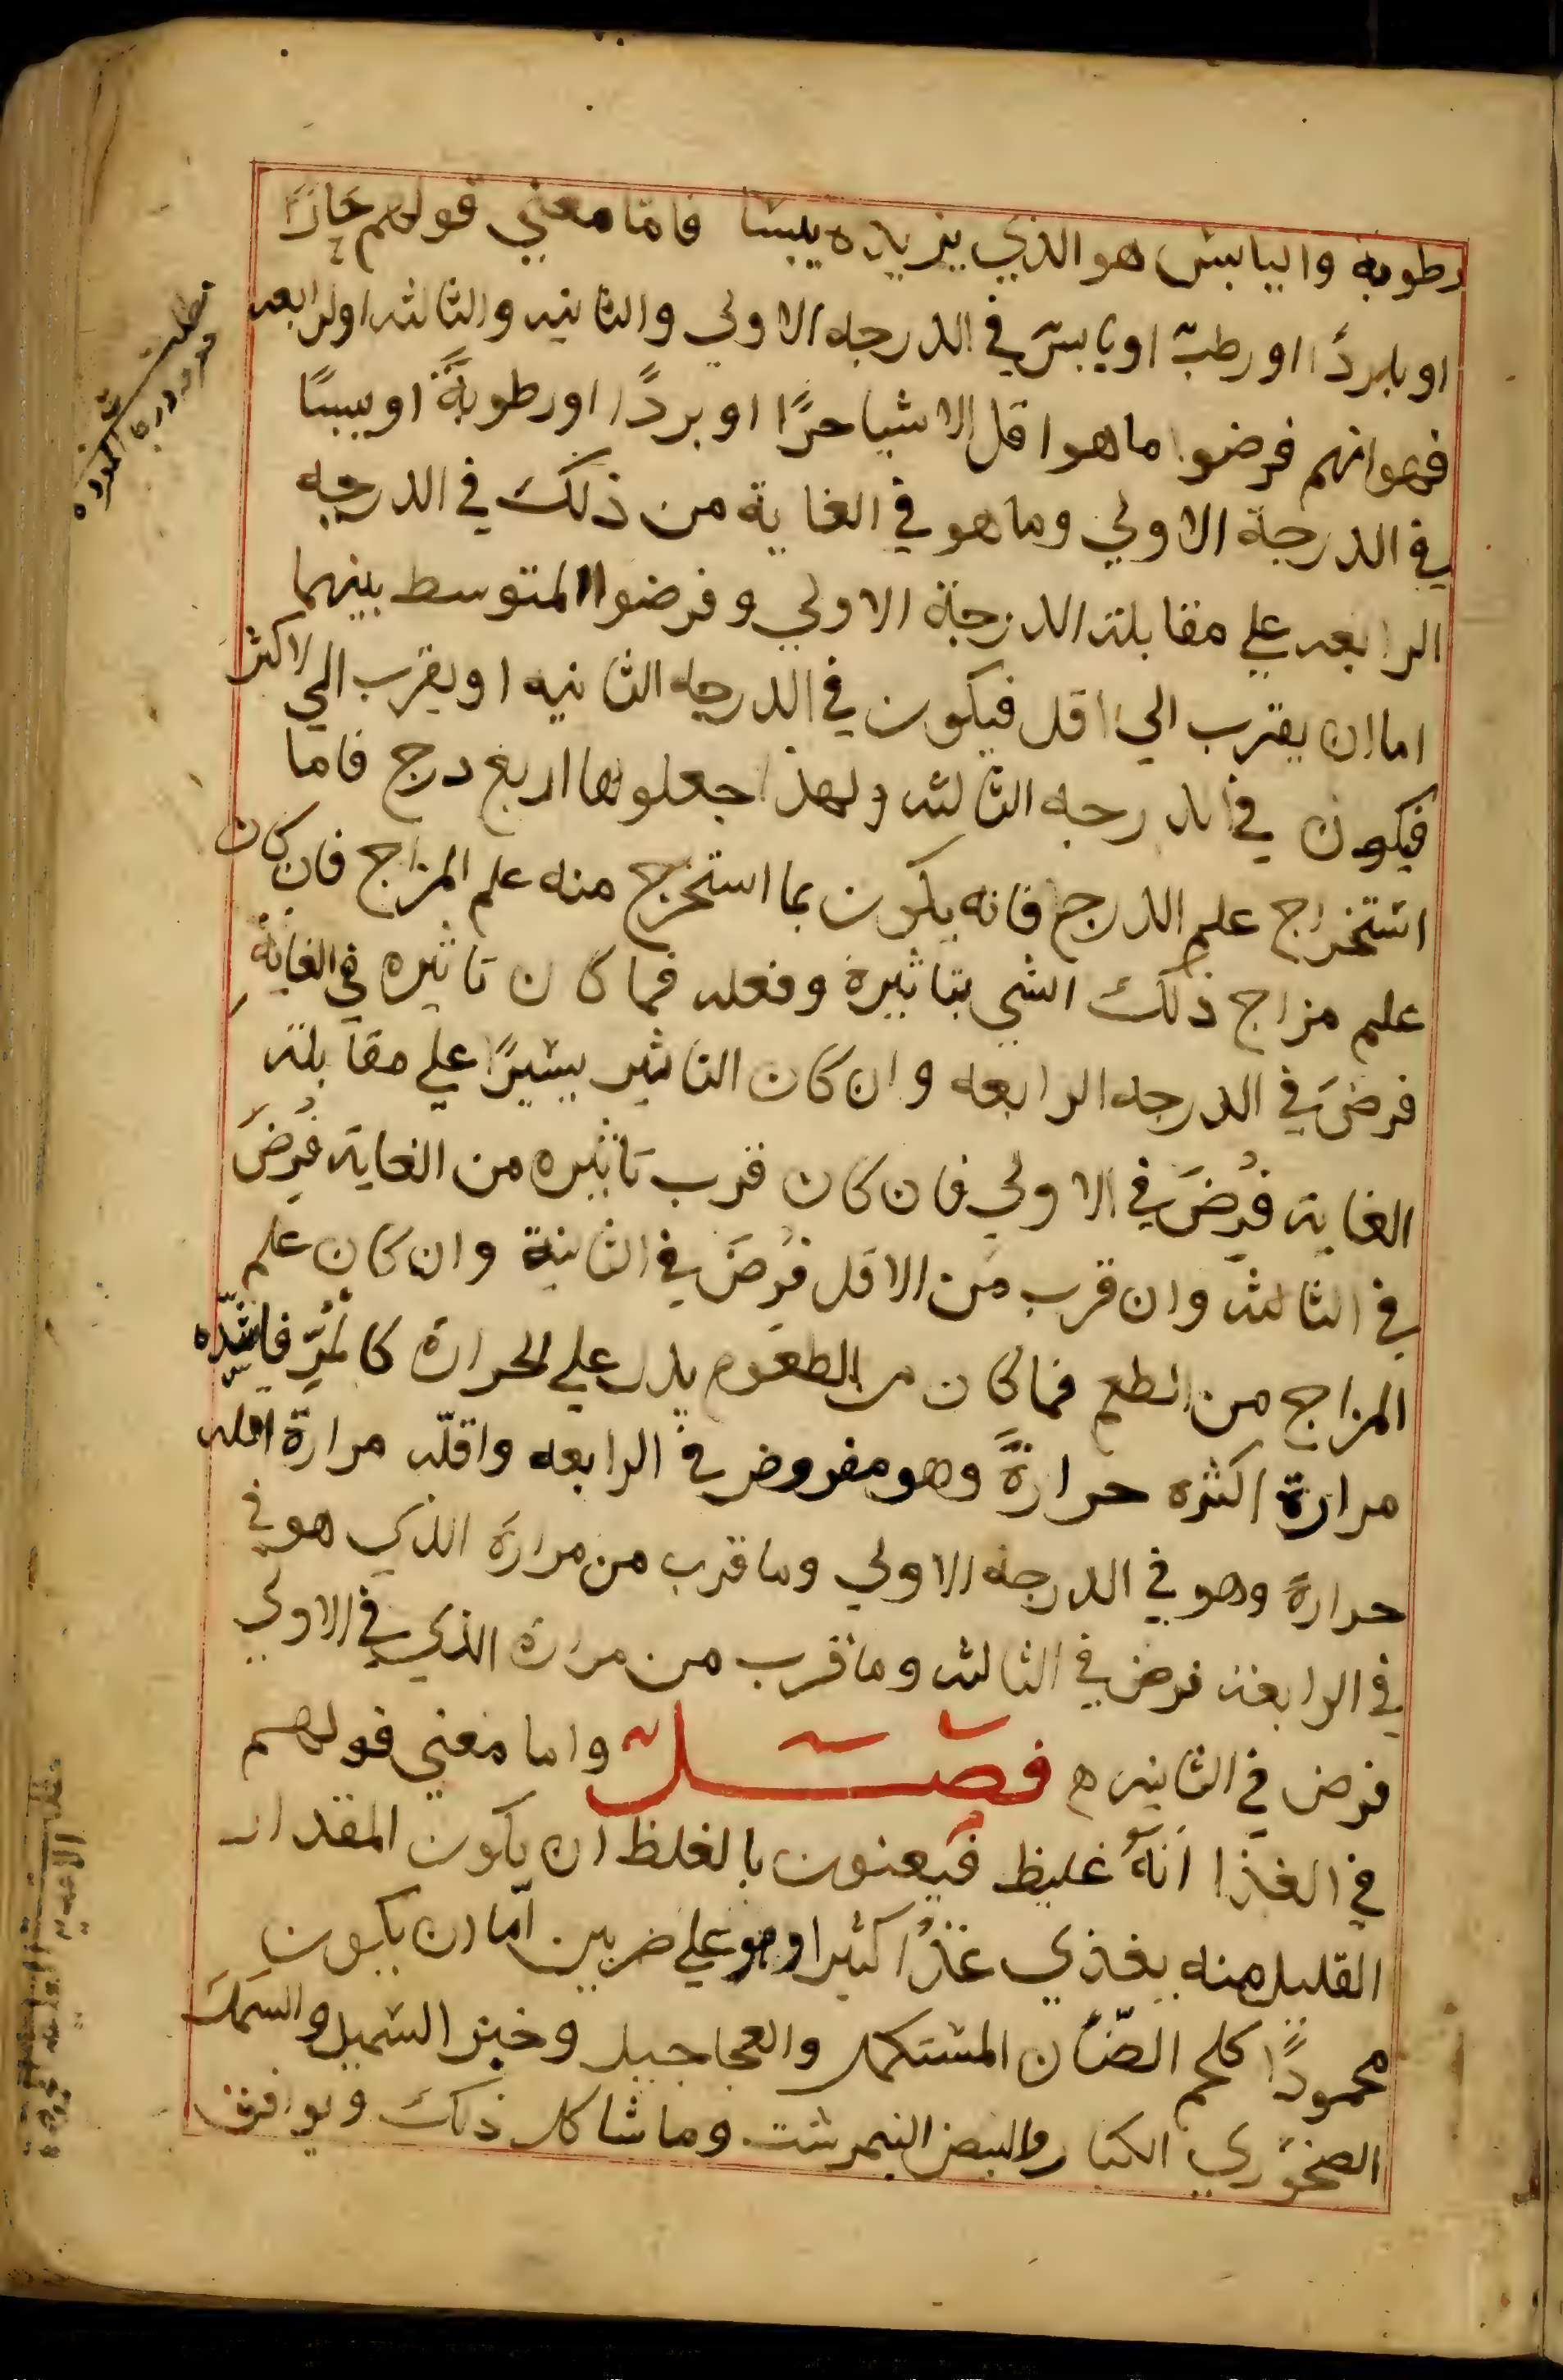 رطوبة واليابس هو الذي يزيده يبسًا فامّا معني قولهم حارًا
او باردًا او رطبّ او يابسّ في الدرجه الاولي والثانيه والثالثه او الرابعه
فهو انهم فرضوا ما هو اقل الاشيا حرًا او بردًا او رطوبةً او يبسًا
في الدرجة الاولي وما هو في الغاية من ذلك في الدرجه
الرابعه علي مقابلة الدرجة الاولي وفرضوا المتوسط بينهما
اما ان يقترب الي اقل فيكون في الدرجه الثانيه او يقرب الي الاكثر
فيكون في الدرجه الثالثه ولهذا جعلوها اربع درج فاما
استخراج علم الدرج فانه يكون بما استخرج منه علم المزاج فان كان
علم مزاج ذلك الشي بتاثيرة وفعله فما كان تاثيره في الغاية
فرضَ في الدرجه الرابعه وان كان التاثير يسيرًا علي مقابلة
الغاية فُرِضَ في الاولي فان كان قرب تاثيره من الغاية فُرِضَ
في الثالثة وان قرب من الاقل فُرِضَ في الثانية وان كان علم
المزاج من الطعم فما كان من الطعوم يدل علي الحرارة كالمُرِّ فاشدّه
مرارة اكثره حرارةً وهو مفروض في الرابعه واقلّه مرارة اقله
حرارة وهو في الدرجة الاولي وما قرب من مرارة الذي هو في
في الرابعة فرض في الثالثه وما قرب من مرارة الذي في الاولي
فرض في الثانيه ه فصل واما معني قولهم
في الغذا انّهُ غليظ فيعنون بالغلظ ان يكون المقدار
القليل منه يغذي غذًا كثيرا وهو علي ضربين امّا ان يكون
محمودًا كلحم الضّان المستكمل والعجاجيل وخبز السميد والسمك
الصخوري الكبار والبيض النيمرشت وما شاكل ذلك ويوافق